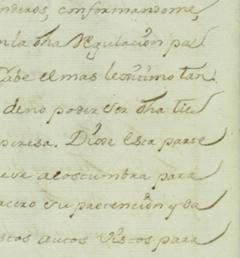 nderos, conformandome,
n la dha Regulación pa
Cabe el mas lexitimo tan
deno poder ser dha tie
peresa. Diose esta parte
eve acostumbra para
acero su pretención y da
stos autos Vistos para